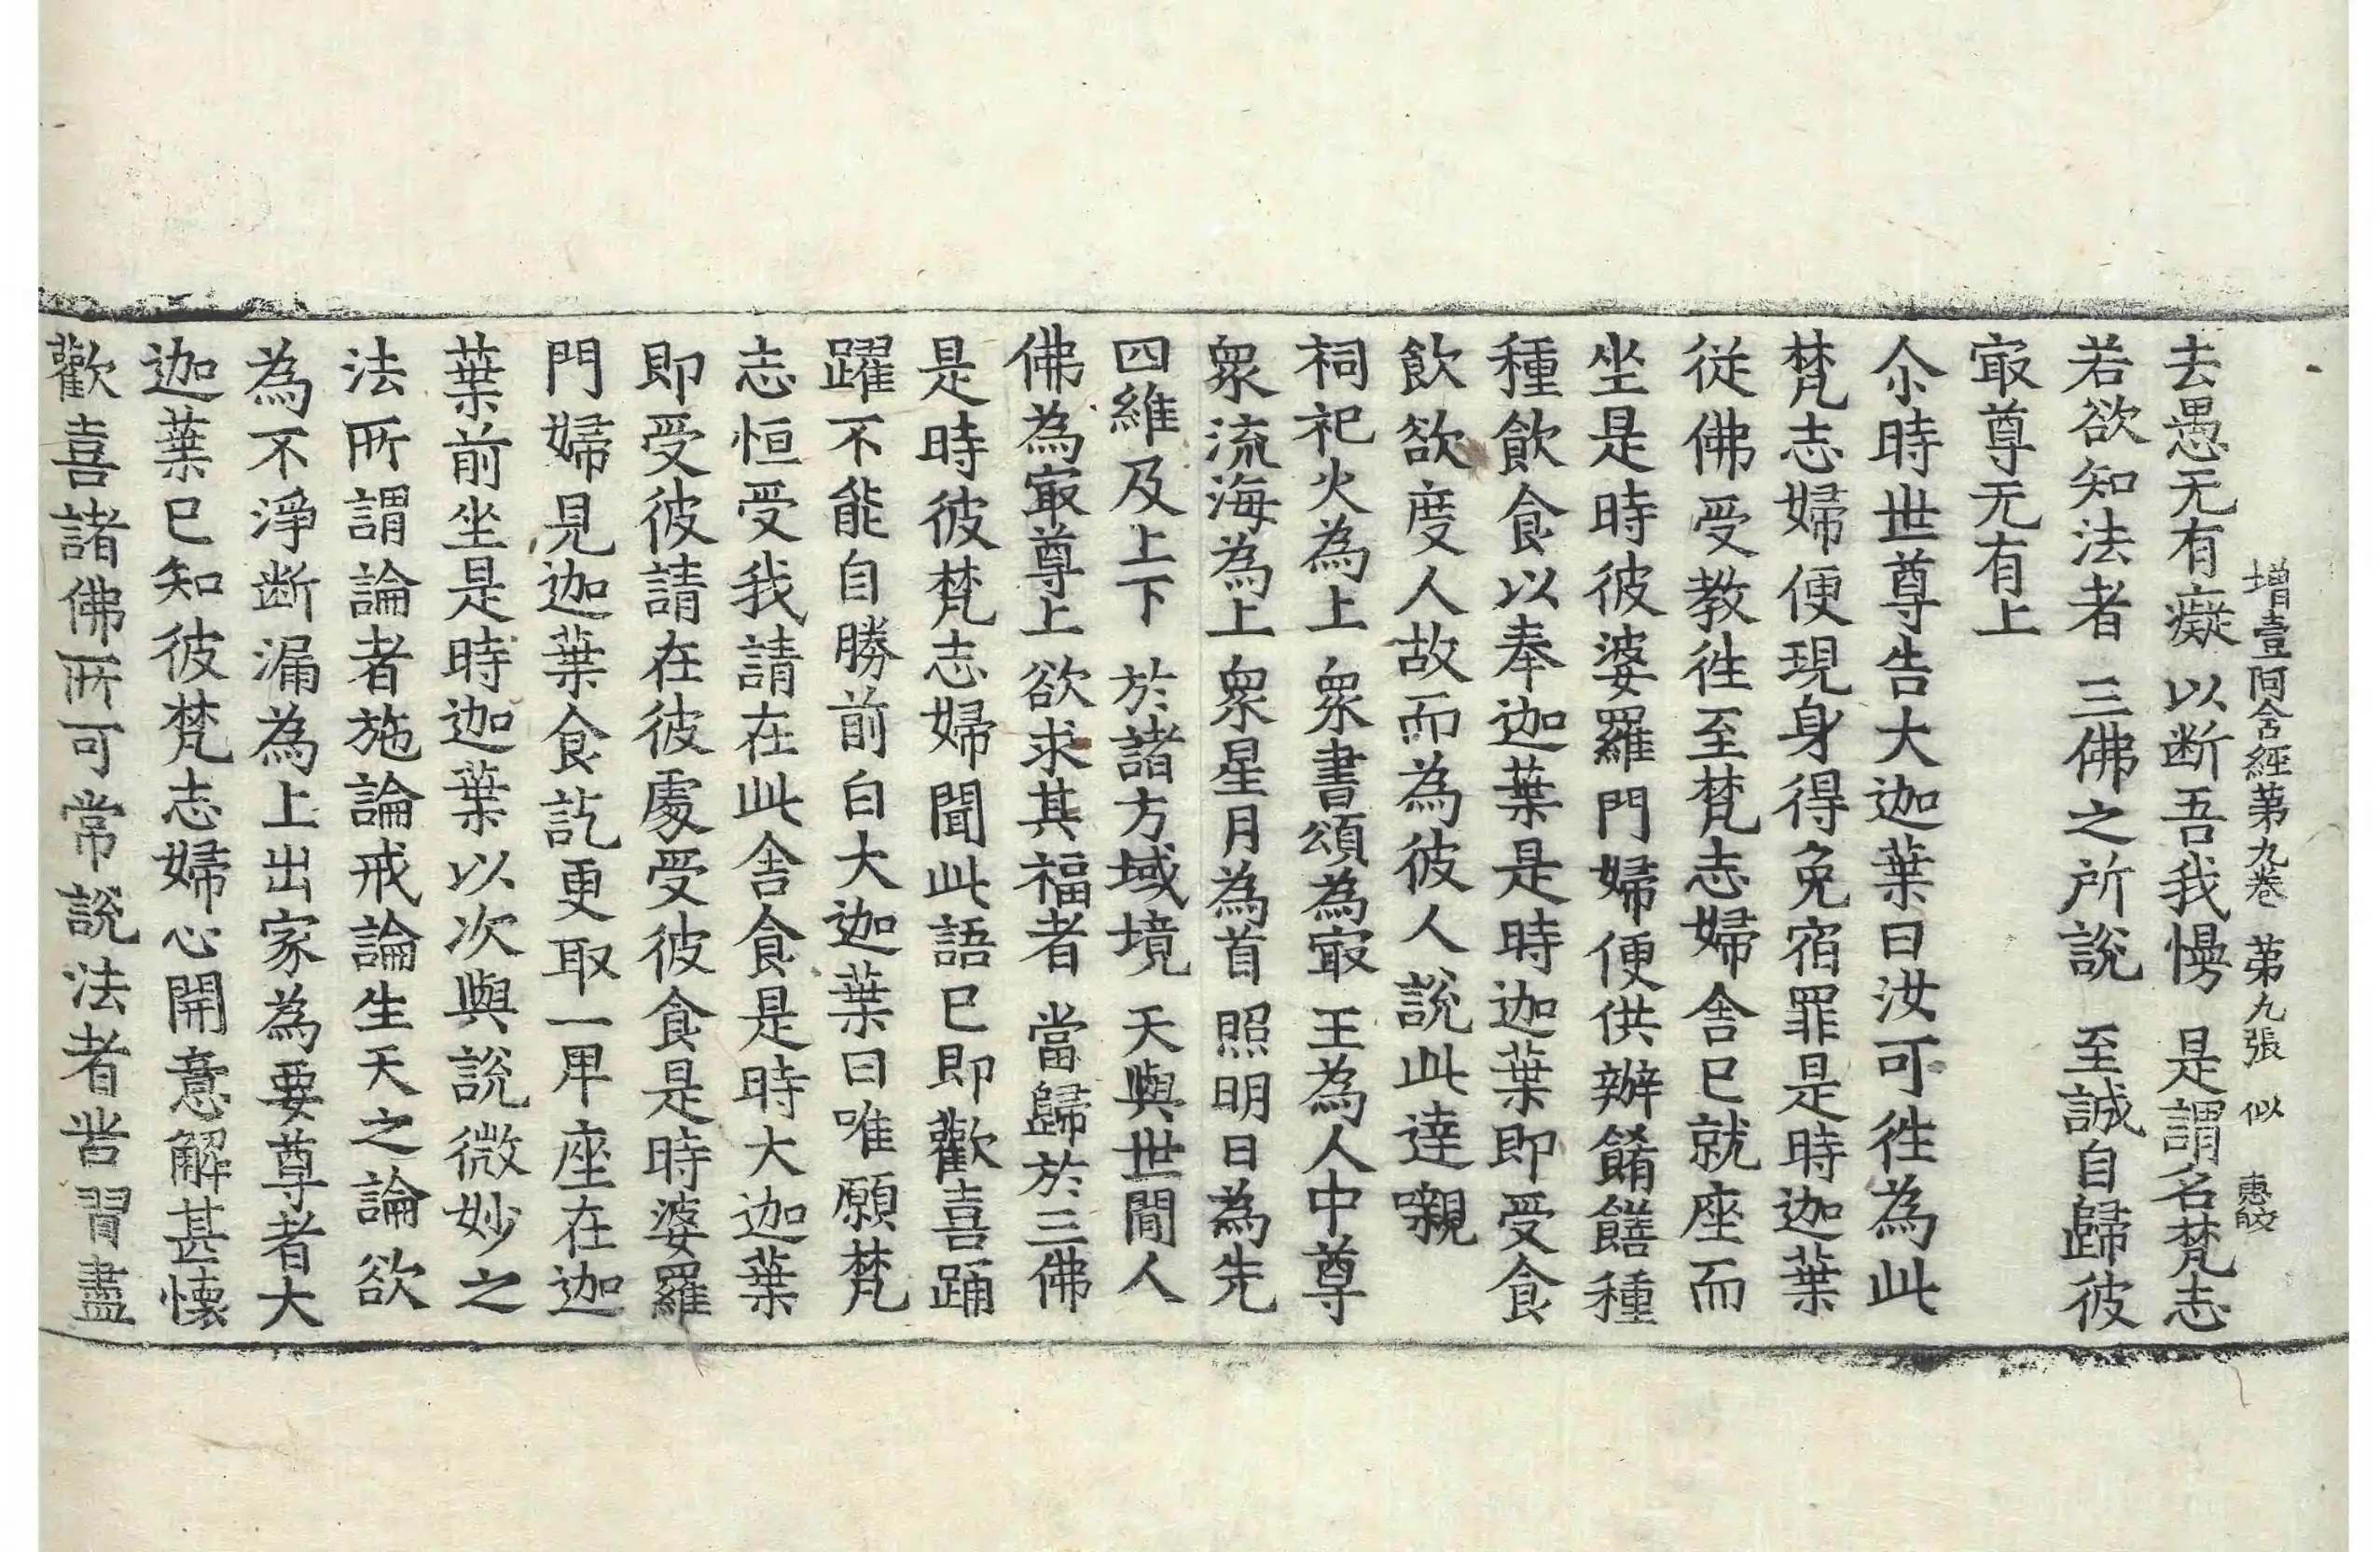 增壹阿含經第九卷 第九張 似 惠皎
去愚无有癡 以断吾我慢 是謂名梵志
若欲知法者 三佛之所說 至誠自歸彼
㝡尊无有上
尒時世尊告大迦葉曰汝可徃為此
梵志婦便現身得免宿罪是時迦葉
從佛受教徃至梵志婦舍已就座而
坐是時彼婆羅門婦便供辦餚饍種
種飲食以奉迦葉是時迦葉即受食
飲欲度人故而為彼人說此達嚫
祠祀火為上 衆書頌為㝡 王為人中尊
衆流海為上 衆星月為首 照明日為先
四維及上下 於諸方域境 天與世間人
佛為㝡尊上 欲求其福者 當歸於三佛
是時彼梵志婦聞此語已即歡喜踊
躍不能自勝前白大迦葉曰唯願梵
志恒受我請在此舍食是時大迦葉
即受彼請在彼處受彼食是時婆羅
門婦見迦葉食訖更取一卑座在迦
葉前坐是時迦葉以次與說微妙之
法所謂論者施論戒論生天之論欲
為不淨断漏為上出家為要尊者大
迦葉已知彼梵志婦心開意解甚懷
歡喜諸佛所可常說法者苦習盡